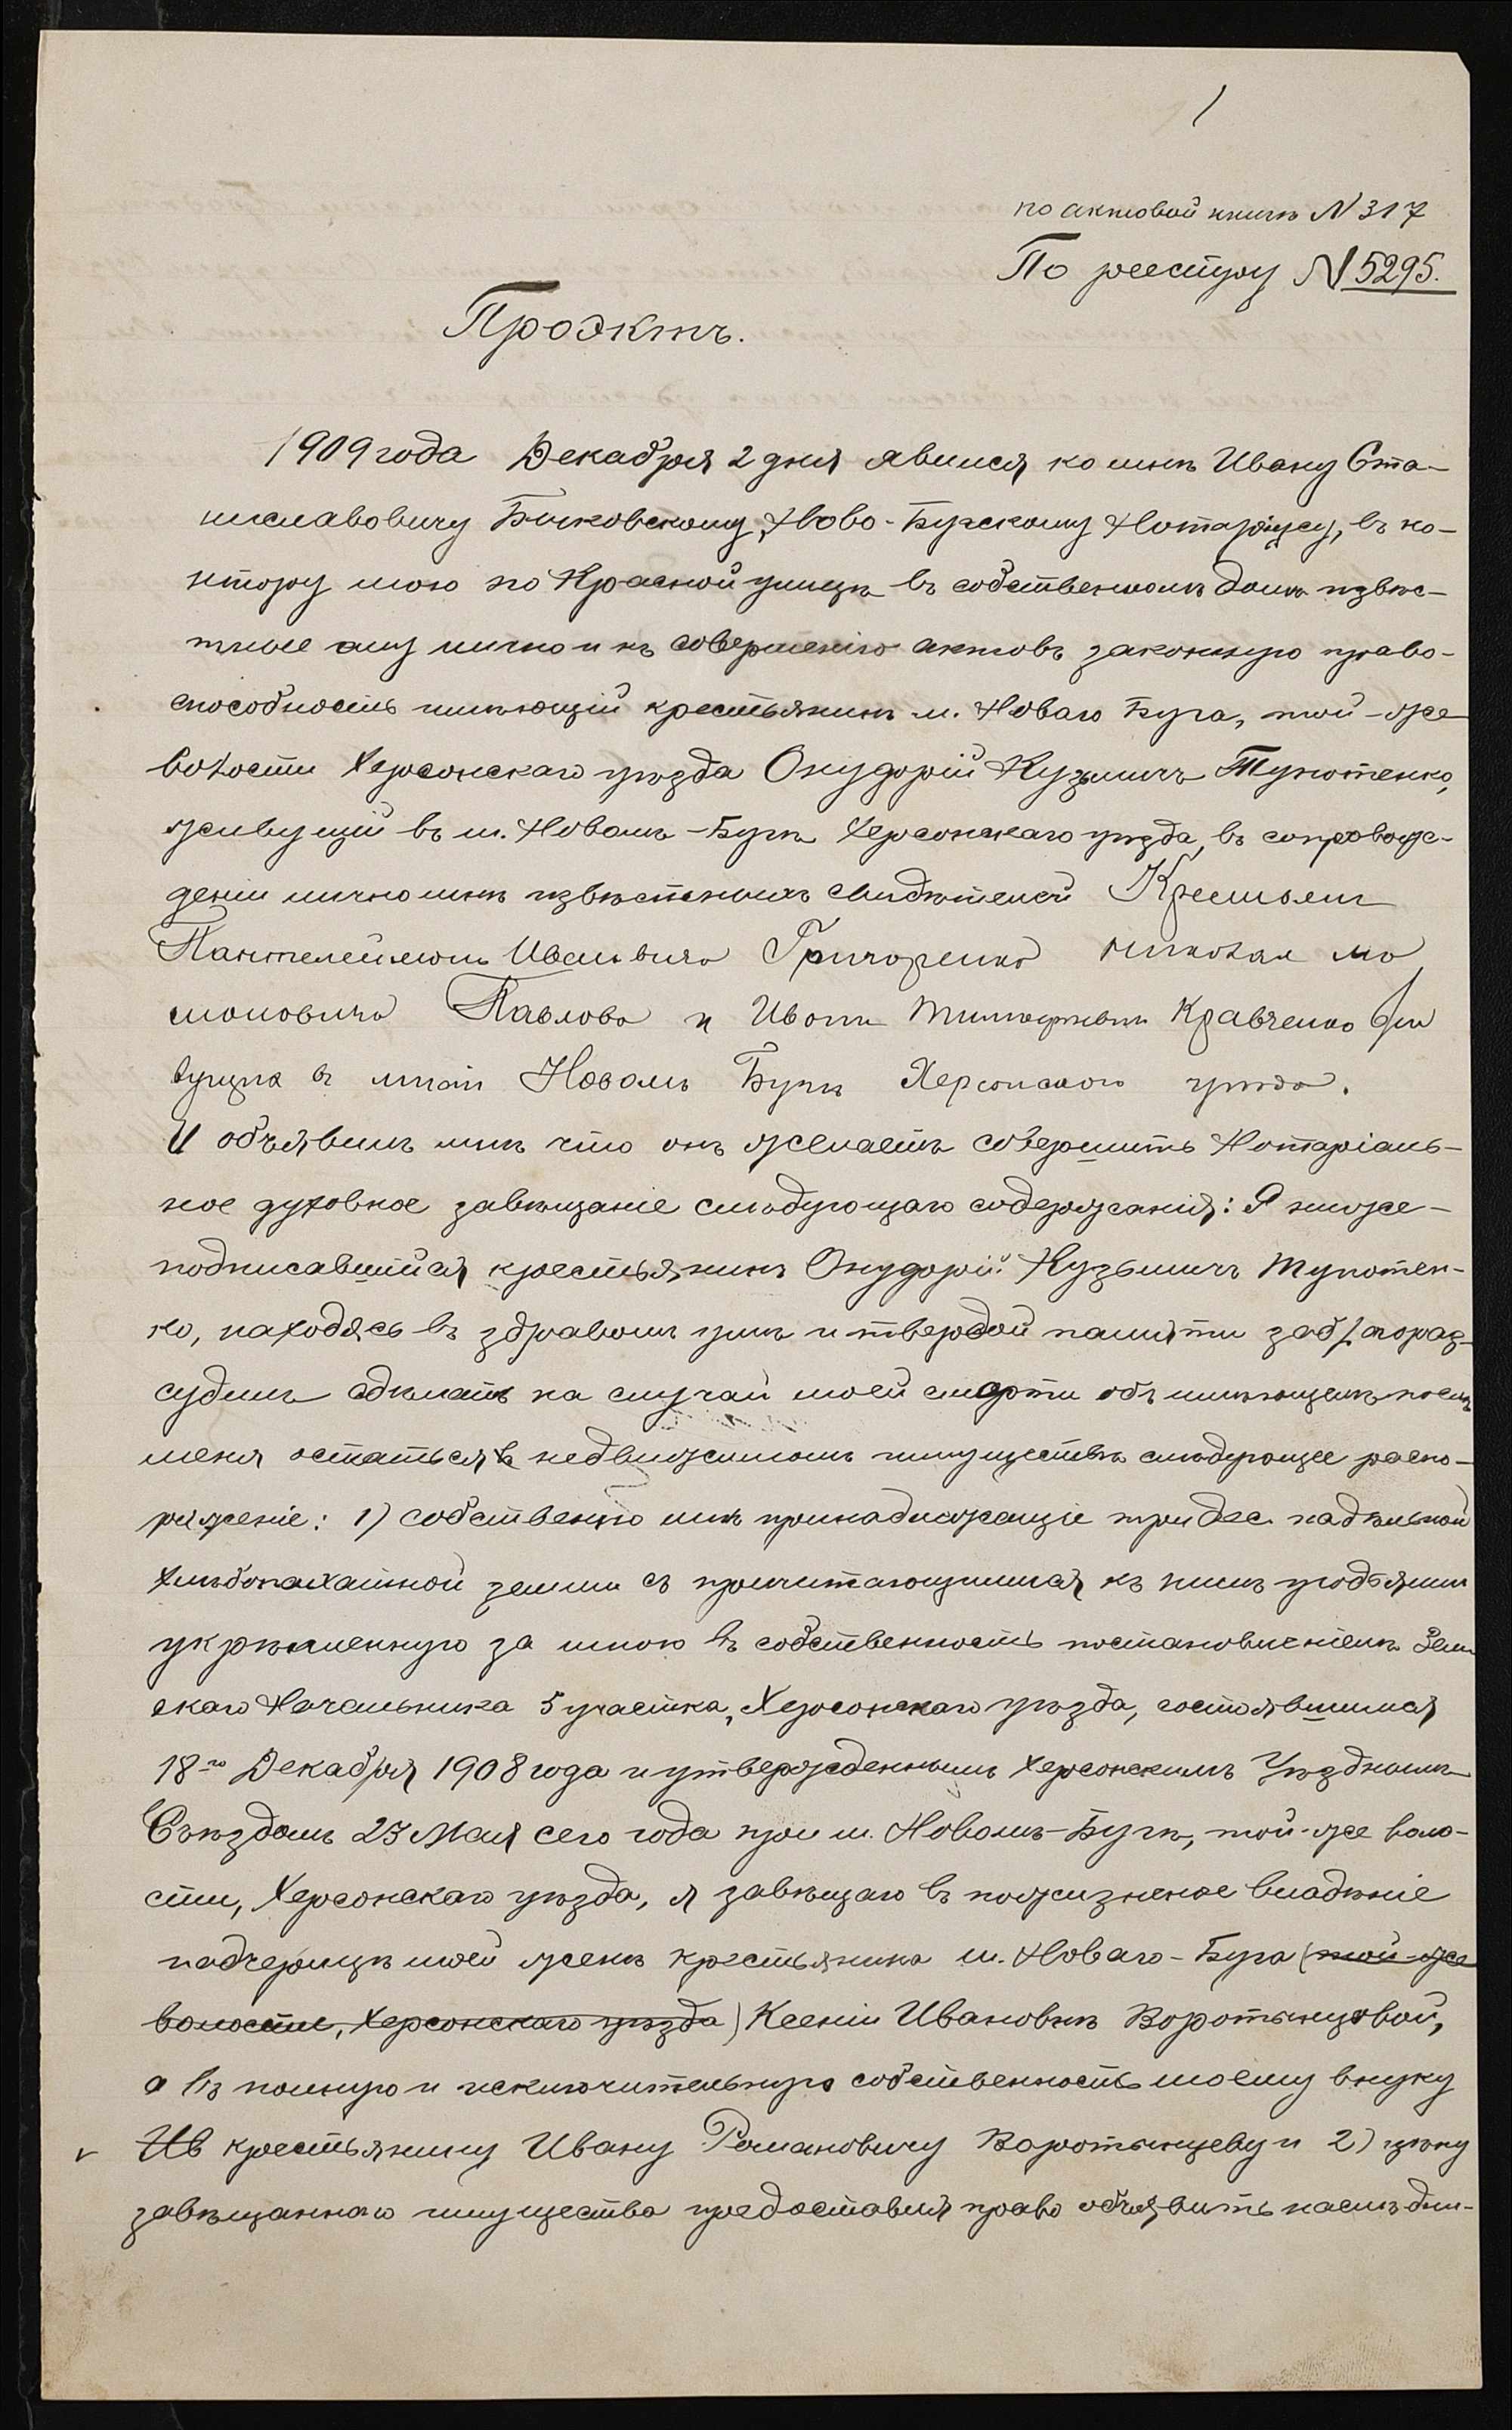 1
по актовой книгѣ N 317
По реестру N 5295.
Проэктъ.
1909 года Декабря 2 дня явился ко мнѣ Ивану Ста-
ниславовичу Быковскому, Ново-Бугскому Нотаріусу, въ ко-
нтору мою по Красной улицѣ въ собственномъ домѣ извѣс-
тные ему лично и къ совершенію актовъ законную право-
способность имѣющій крестьянинъ м. Новаго Буга, той-же
волости Херсонскаго уѣзда Онуфрій Кузьмичъ Тупотенко,
живущій въ м. Новомъ-Бугѣ Херсонскаго уѣзда, въ сопровож-
деніи лично мнѣ извѣстныхъ свидѣтелей Крестьянъ
Пантелеймона Ивановича Григоренко Николая
Павлова и Ивана Кравченко жи
вущихъ в Новомъ Бугѣ Херсонскаго уѣзда.
И объявилъ мнѣ что онъ желаетъ совершить Нотаріаль-
ное духовное завѣщаніе слѣдующаго содержанія: Я ниже-
подписавшійся крестьянинъ Онуфрій Кузьмичъ Тупотен-
ко, находясь въ здравомъ умѣ и твердой памяти заблагораз-
судилъ сдѣлать на случай моей смерти объ имѣющемъ послѣ
меня остаться недвижимомъ имуществѣ слѣдующее распо-
ряженіе: 1) собственно мнѣ принадлежащіе три дес. надѣльной
хлѣбопахатной земли съ причитающимися къ нимъ угодьями
укрѣпленную за мною въ собственность постановленіемъ Зем
скаго Начальника 5 участка, Херсонскаго уѣзда, состоявшимся
18го Декабря 1908 года и утвержденнымъ Херсонскимъ Уѣзднымъ
Съѣздомъ 23 Мая сего года при м. Новомъ-Бугѣ, той-же воло-
сти, Херсонскаго уѣзда, я завѣщаю въ пожизненое владѣніе
падчерицѣ моей женѣ крестьянина м. Новаго-Буга (той-же
волости, Херсонскаго уѣзда) Ксеніи Ивановнѣ Воротынцовой,
а въ полную и исключительную собственность моему внуку
Ив крестьянину Ивану Романовичу Воротынцеву и 2) цѣну
завѣщаннаго имущества предоставля право объявить наслѣдни-